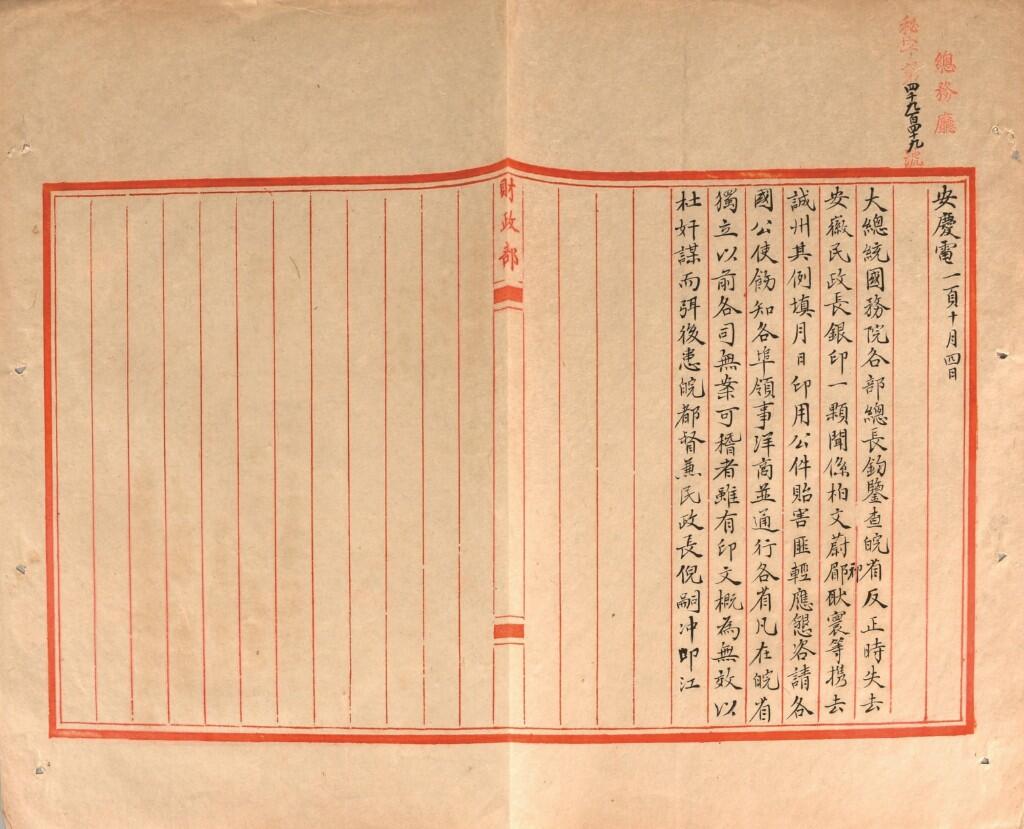 總務廳
秘字第四千九百四十九號
安慶電一百十月四日
大總統國務院各部總長鈞鑒查皖省反正時失去
安徽民政長銀印一顆聞係柏文蔚鄒耿寰等携去
誠州其例填月日印用公件貽害匪輕應懇咨請各
國公使飭知各埠領事洋商並通行各省凡在皖省
獨立以前各司無案可稽者雖有印文概為無效以
杜奸謀而弭後患皖都督兼民政長倪嗣冲叩江
財政部